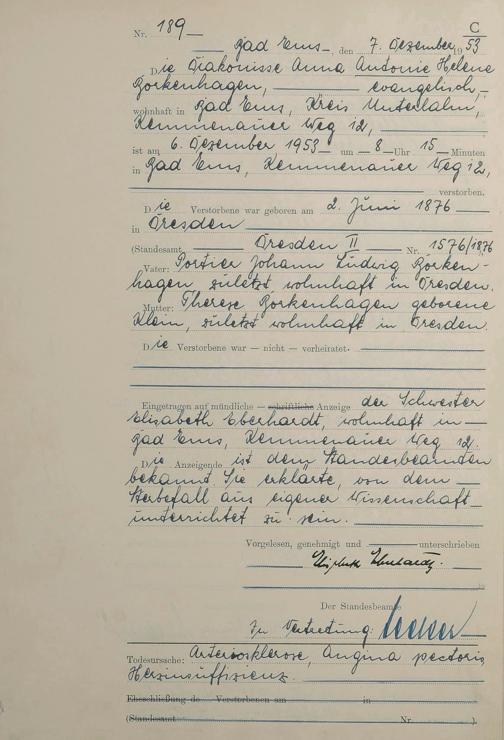 C
Nr. 189
Bad Ems, den 7. Dezember 1953
Die Diakonisse Anna Antonie Helene
Borkenhagen, evangelisch,
wohnhaft in Bad Ems, Kreis Unterlahn,
Kemmenauer Weg 12,
ist am 6. Dezember 1953 um 8 Uhr 15 Minuten
in Bad Ems, Kemmenauer Weg 12,
verstorben.
Die Verstorbene war geboren am 2. Juni 1876
in Dresden
(Standesamt Dresden II Nr. 1576/1876
Vater: Portier Johann Ludwig Borken-
hagen, zuletzt wohnhaft in Dresden.
Mutter: Therese Borkenhagen geborene
Klein, zuletzt wohnhaft in Dresden.
Die Verstorbene war — nicht — verheiratet.
Eingetragen auf mündliche — schriftliche Anzeige der Schwester
Elisabeth Eberhardt, wohnhaft in
Bad Ems, Kemmenauer Weg 12.
Die Anzeigende ist dem Standesbeamten
bekannt. Sie erklärte, von dem
Sterbefall aus eigener Wissenschaft
unterrichtet zu sein.
Vorgelesen, genehmigt und unterschrieben
Elisabeth Eberhardt.
Der Standesbeamte
In Vertretung:
Todesursache: Arteriosklerose, Angina pectoris
Herzinsuffizienz.
Eheschließung de Verstorbenen am in
(Standesamt Nr. ).